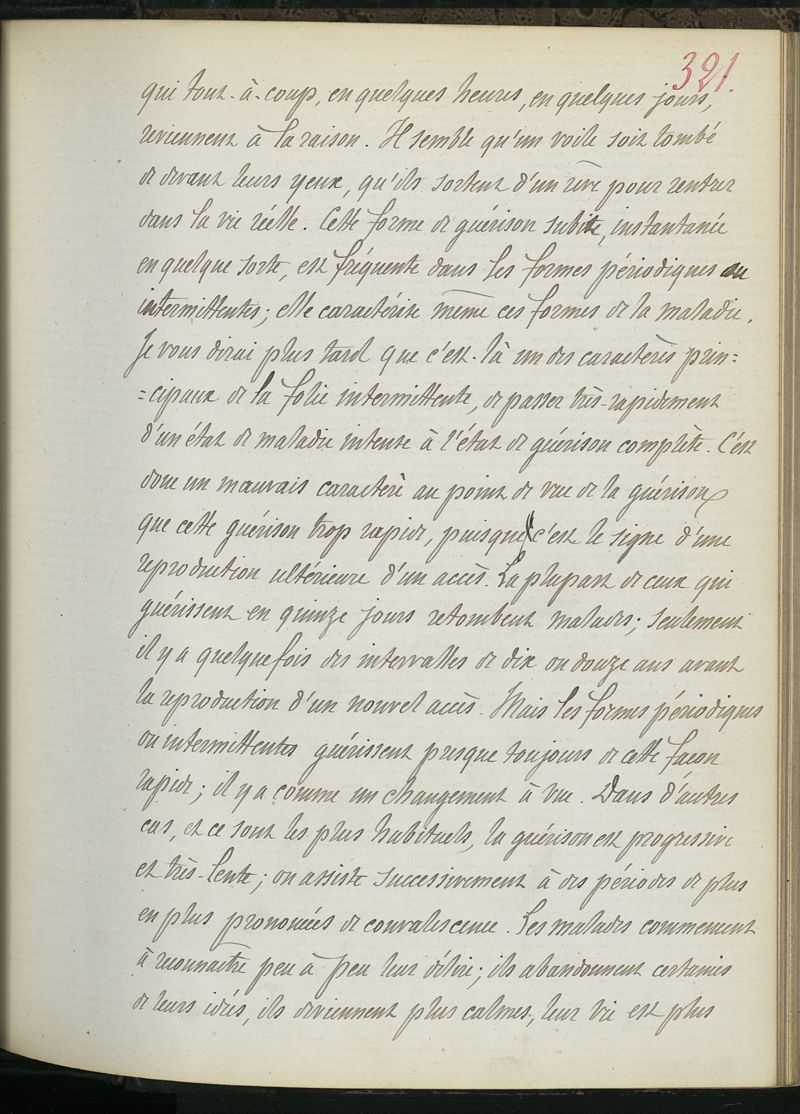 321.
qui tout-à-coup, en quelques heures, en quelques jours,
reviennent à la raison. Il semble qu'un voile soit tombé
de devant leurs yeux, qu'ils sortent d'un rêve pour rentrer
dans la vie réelle. Cette forme de guérison subite, instantanée
en quelque sorte, est fréquente dans les formes périodiques ou
intermittentes; elle caractérise même ces formes de la maladie.
Je vous dirai plus tard que c'est-là un des caractères prin=
=cipaux de la folie intermittente, de passer très-rapidement
d'un état de maladie intense à l'état de guérison complète. C'est
donc un mauvais caractère au point de vue de la guérison
que cette guérison trop rapide, puisque c'est le signe d'une
reproduction ultérieure d'un accès. La plupart de ceux qui
guérissent en quinze jours retombent malades; seulement
il y a quelquefois des intervalles de dix ou douze ans avant
la reproduction d'un nouvel accès. Mais les formes périodiques
ou intermittentes guérissent presque toujours de cette façon
rapide; il y a comme un changement à vue. Dans d'autres
cas, et ce sont les plus habituels, la guérison est progressive
et très-lente; on assiste successivement à des périodes de plus
en plus prononcées de convalescence. Les malades commencent
à reconnaître peu à peu leur délire; ils abandonnent certaines
de leurs idées, ils deviennent plus calmes, leur vie est plus